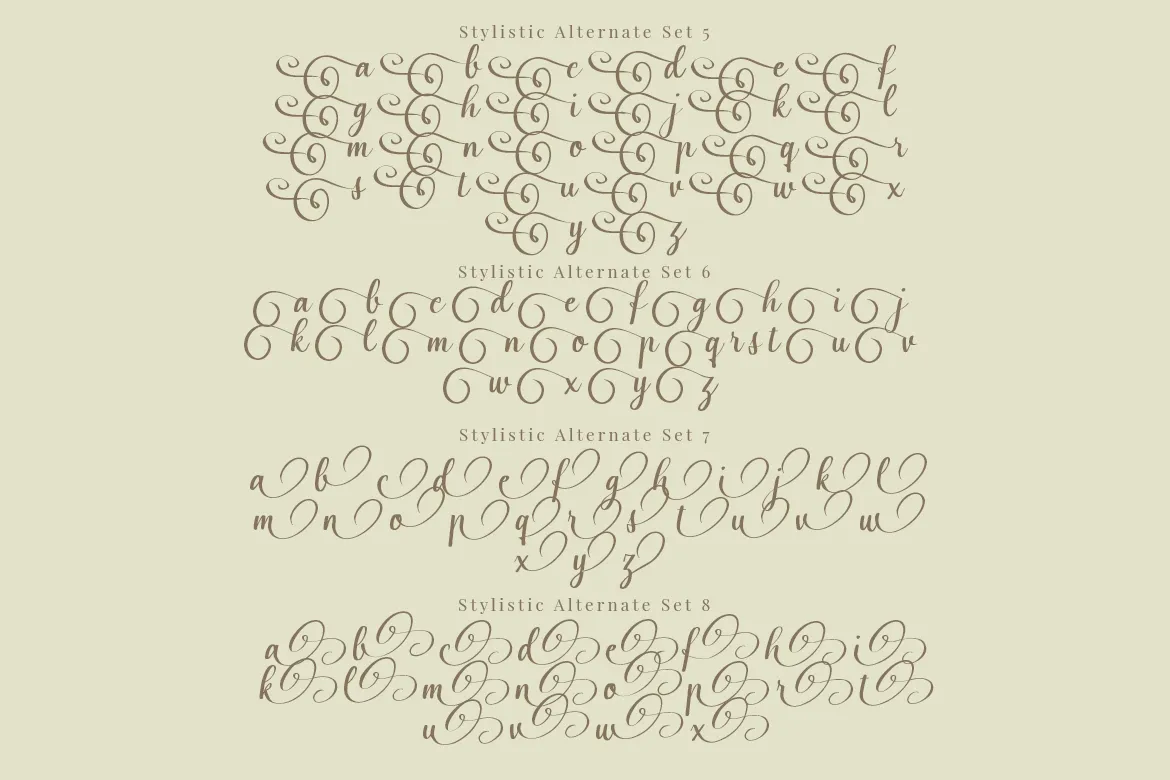 Stylistic Alternate Set 5
a b c d e f
g h i j k l
m n o p q r
s t u v w x
y z
Stylistic Alternate Set 6
a b c d e f g h i j
k l m n o p q r s t u v
w x y z
Stylistic Alternate Set 7
a b c d e f g h i j k l
m n o p q r s t u v w
x y z
Stylistic Alternate Set 8
a b c d e f h i
k l m n o p r t
u v w x